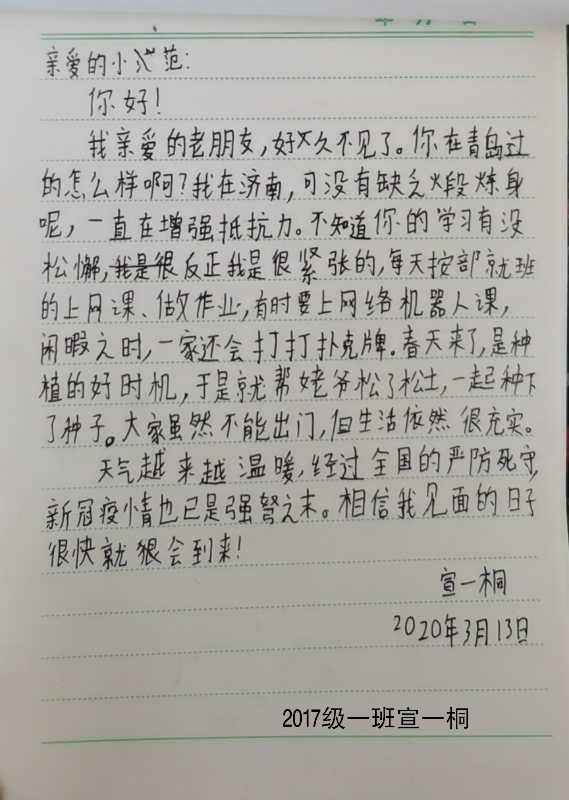 亲爱的小范:
你好!
我亲爱的老朋友,好久不见了。你在青岛过
的怎么样啊?我在济南,可没有缺乏煅炼身
呢,一直在增强抵抗力。不知道你的学习有没
松懈,我是很反正我是很紧张的,每天按部就班
的上网课、做作业,有时要上网络机器人课,
闲暇之时,一家还会打打扑克牌。春天来了,是种
植的好时机,于是就帮姥爷松了松土,一起种下
了种子。大家虽然不能出门,但生活依然很充实。
天气越来越温暖,经过全国的严防死守,
新冠疫情也已是强弩之末。相信我见面的日子
很快就狠会到来!
宣一桐
2020年3月13日
2017级一班宣一桐